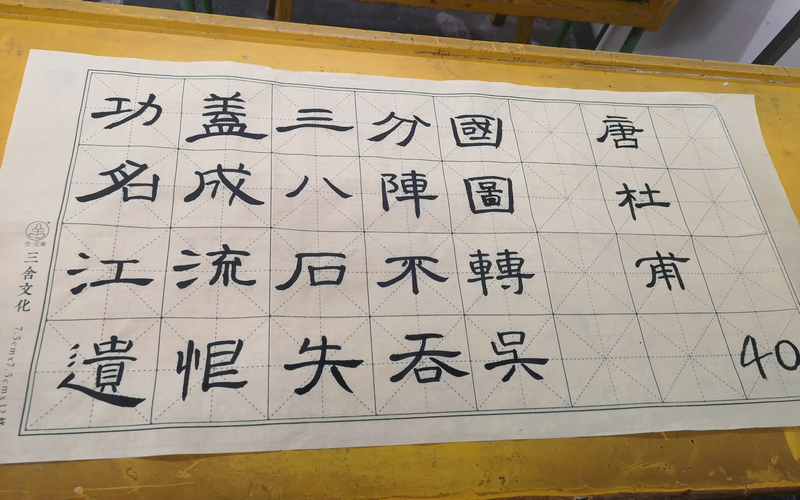 功蓋三分國
名成八陣圖
江流石不轉
遺恨失吞吳
唐杜甫
40
三舍文化
7.5cmx7.5cmx32格